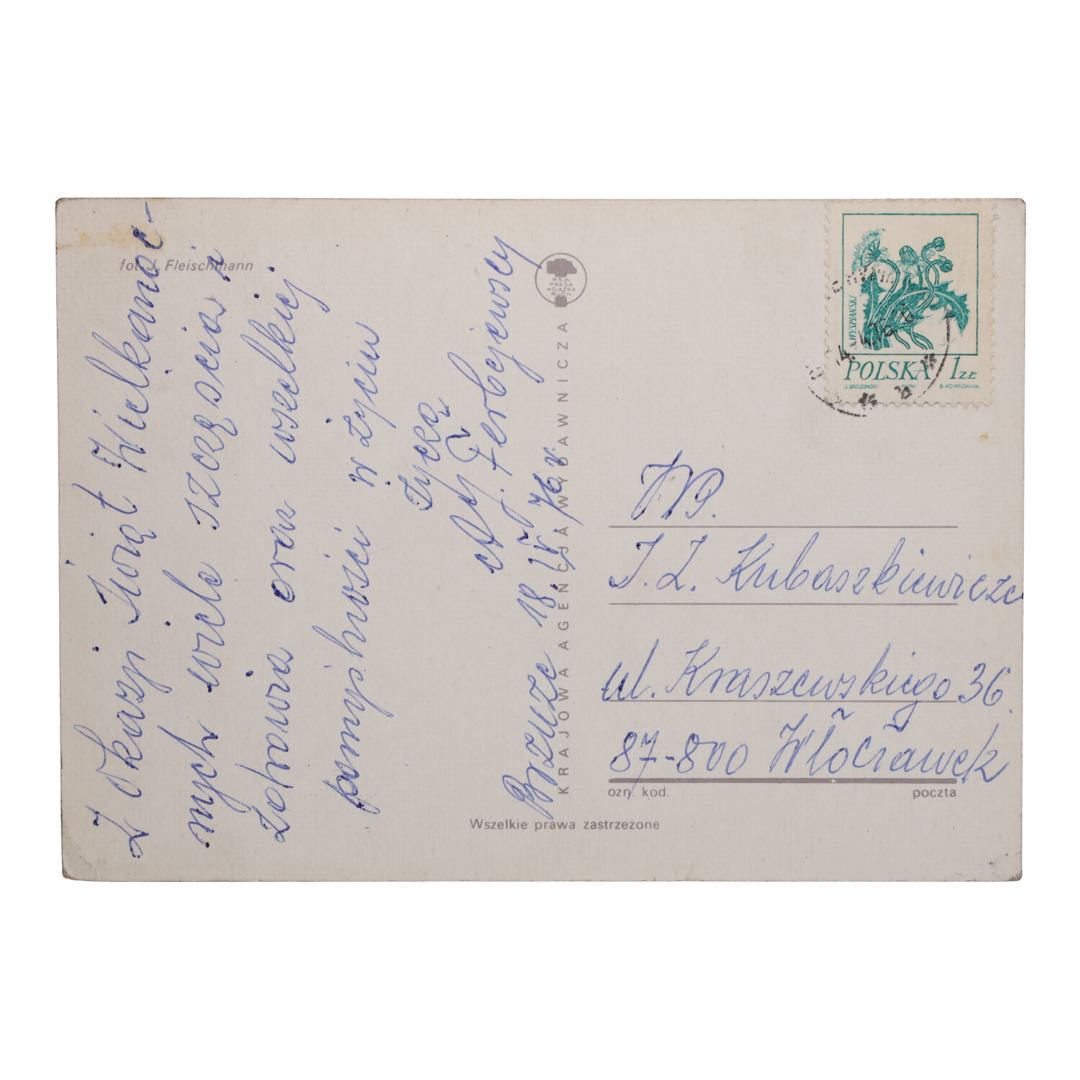 fot. J. Fleischmann
Z okazji Świąt Wielkanoc-
nych wiele szczęścia i
zdrowia oraz wszelkiej
pomyślności w życiu
życzą
Ferbejewscy
Brzuze 18.IV.76r
KRAJOWA AGENCJA WYDAWNICZA
RSW
PRASA
KSIĄŻKA
RUCH
S. WYSPIAŃSKI
POLSKA 1 ZŁ
WP.
J. Z. Kubaszkiewicze
ul. Kraszewskiego 36
87-800 Włocławek
ozn. kod. poczta
Wszelkie prawa zastrzeżone